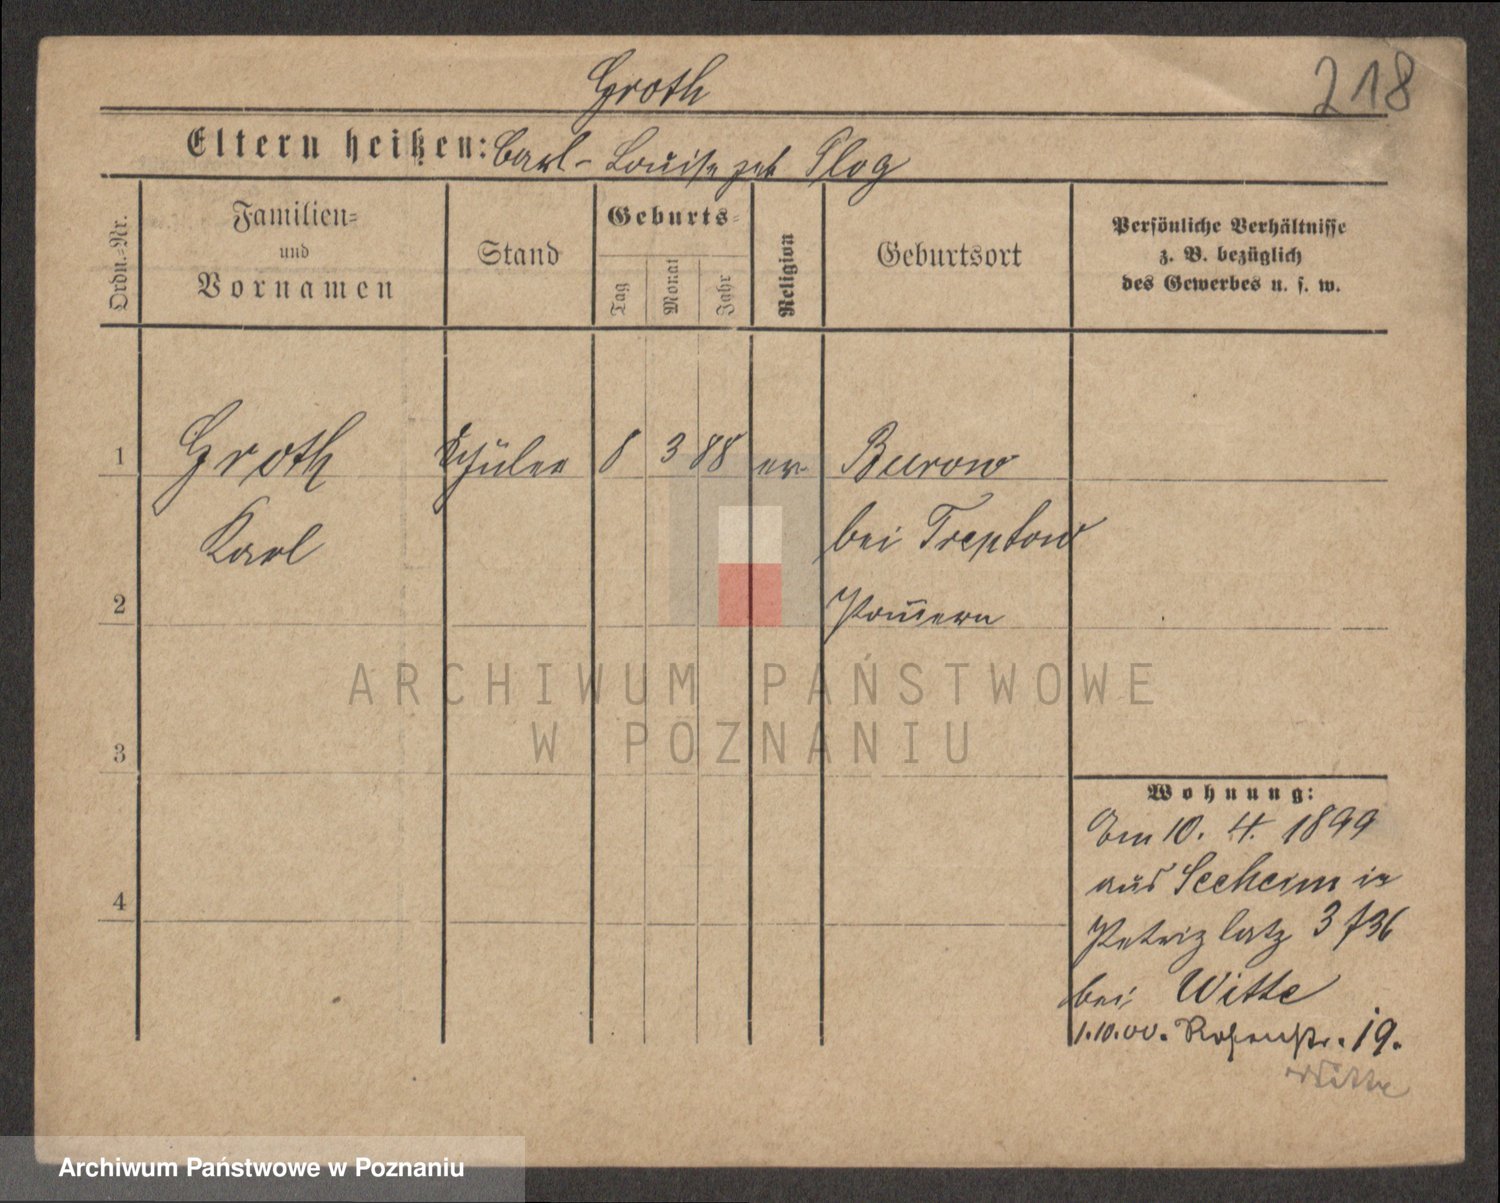 Groth
218
Eltern heißen: Carl - Louise geb Plog
Ordn.-Nr.
Familien-
und
Vornamen
Stand
Geburts-
Tag
Monat
Jahr
Religion
Geburtsort
Persönliche Verhältnisse
z. B. bezüglich
des Gewerbes u. s. w.
1 Groth Schüler 8 3 88 ev Burow
Karl bei Treptow
2 Pom̄ern
ARCHIWUM PAŃSTWOWE
W POZNANIU
3
Wohnung:
Am 10. 4. 1899
aus Seeheim in
4 Petriplatz 3 736
bei Witte
1.10.00. Rosenstr. 19.
Witte
Archiwum Państwowe w Poznaniu